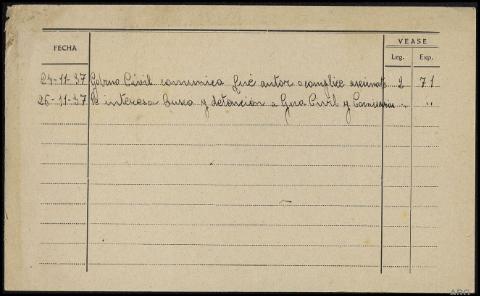 VEASE
FECHA Leg. Exp.
24-11-37 Gobrno Civil comunica fué autor o complice asesinato 2 71
26-11-37 Se interesa busca y detencion a Gna Civil y Comisaria " "